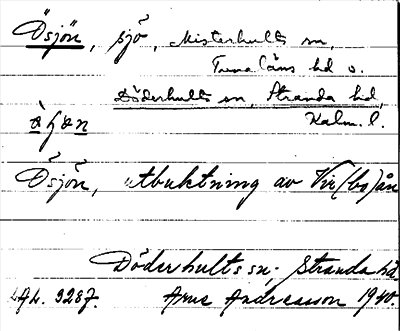 Ösjön, sjö, Misterhults sn,
Tunaläns hd o.
Döderhults sn, Stranda hd,
Kalm. l.
Ösjön, utbuktning av Vir(bo)ån
Döderhults sn; Stranda hd.
LAL. 3287. Arne Andreasson 1940.